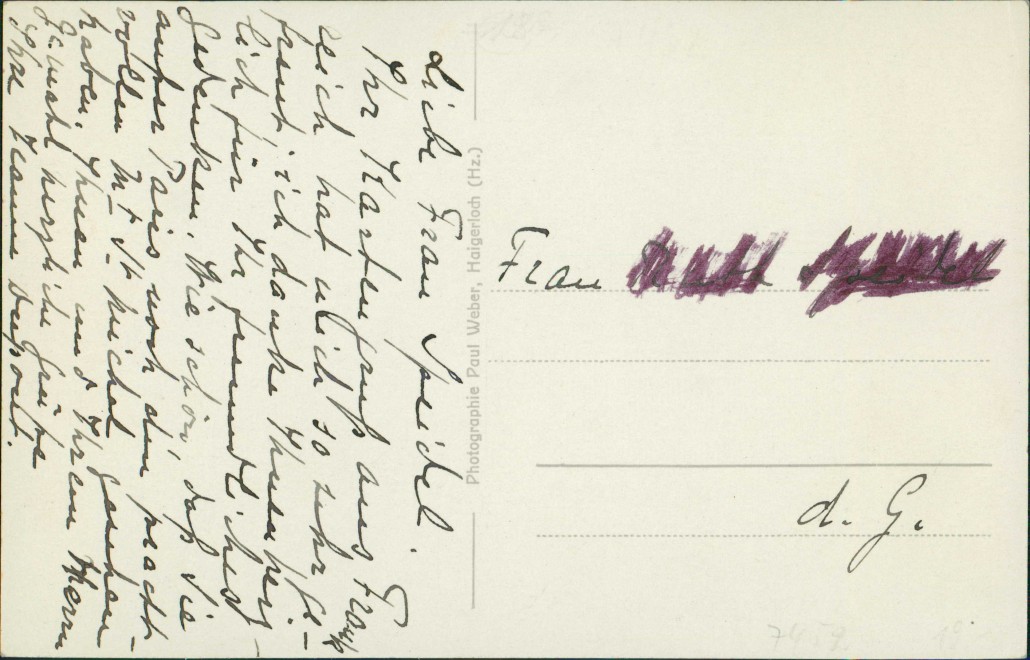 Liebe Frau Speidel.
Ihr Kartengruß aus Frank
reich hat mich so sehr ge-
freut, ich danke Ihnen herz-
lich für Ihr freundliches
Gedenken. Wie schön, daß Sie
außer Paris noch den pracht-
vollen Mt St Michel gesehen
haben. Ihnen und Ihrem Herrn
Gemahl herzliche Grüße
Ihre
Photographie Paul Weber, Haigerloch (Hz.)
Frau
d. G.